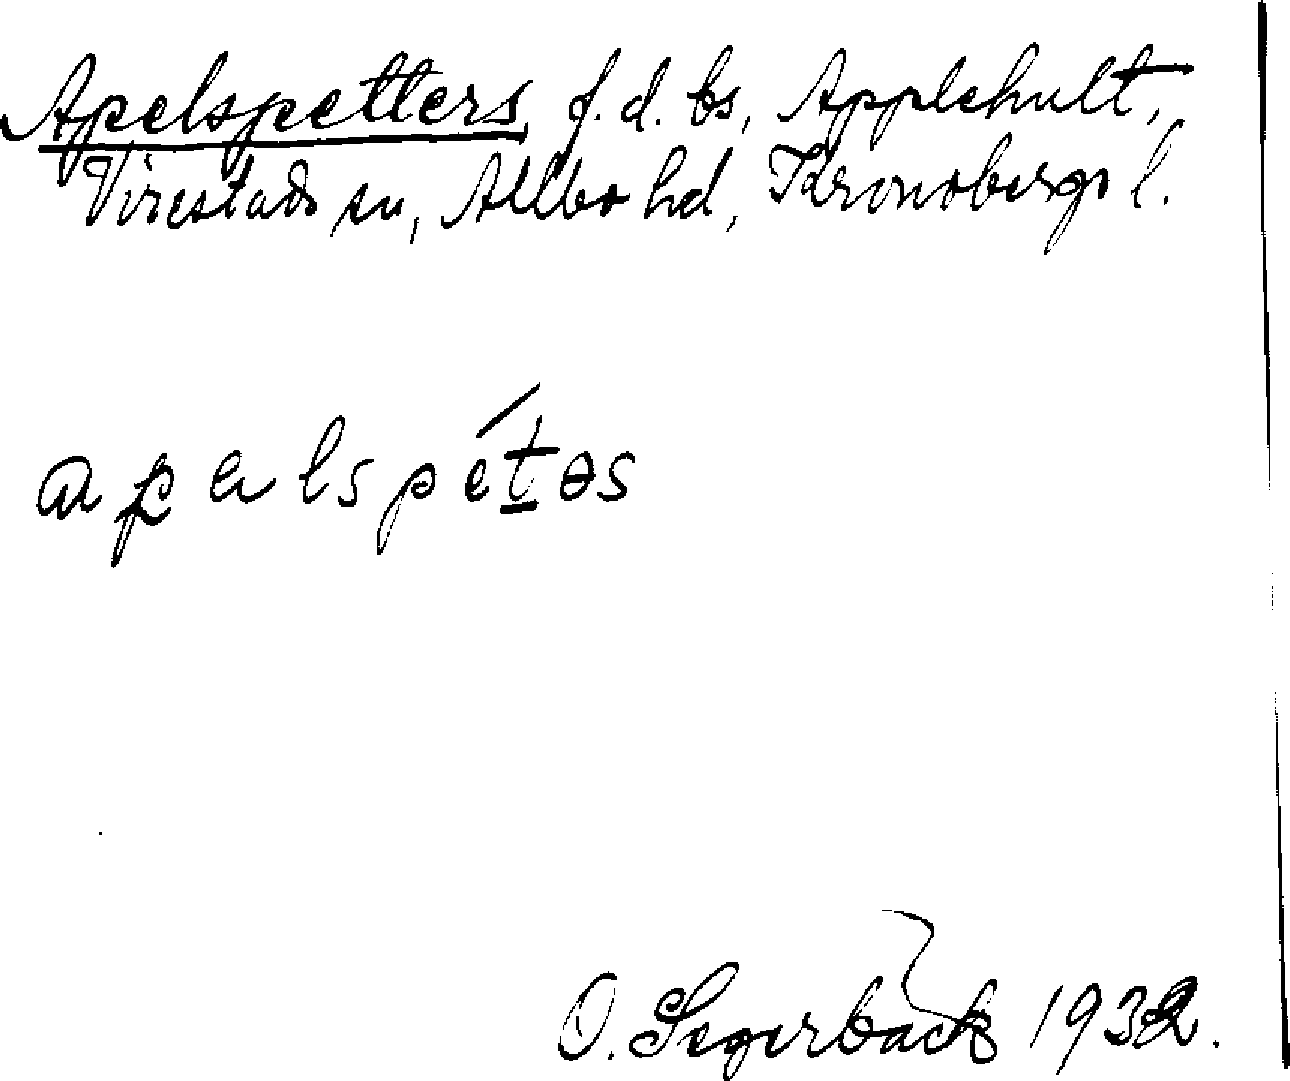 Apelspetters, f.d. bs, Applehult,
Virestads sn, Allbo hd, Kronobergs l.
apalspétəs
O. Segerbäck 1932.